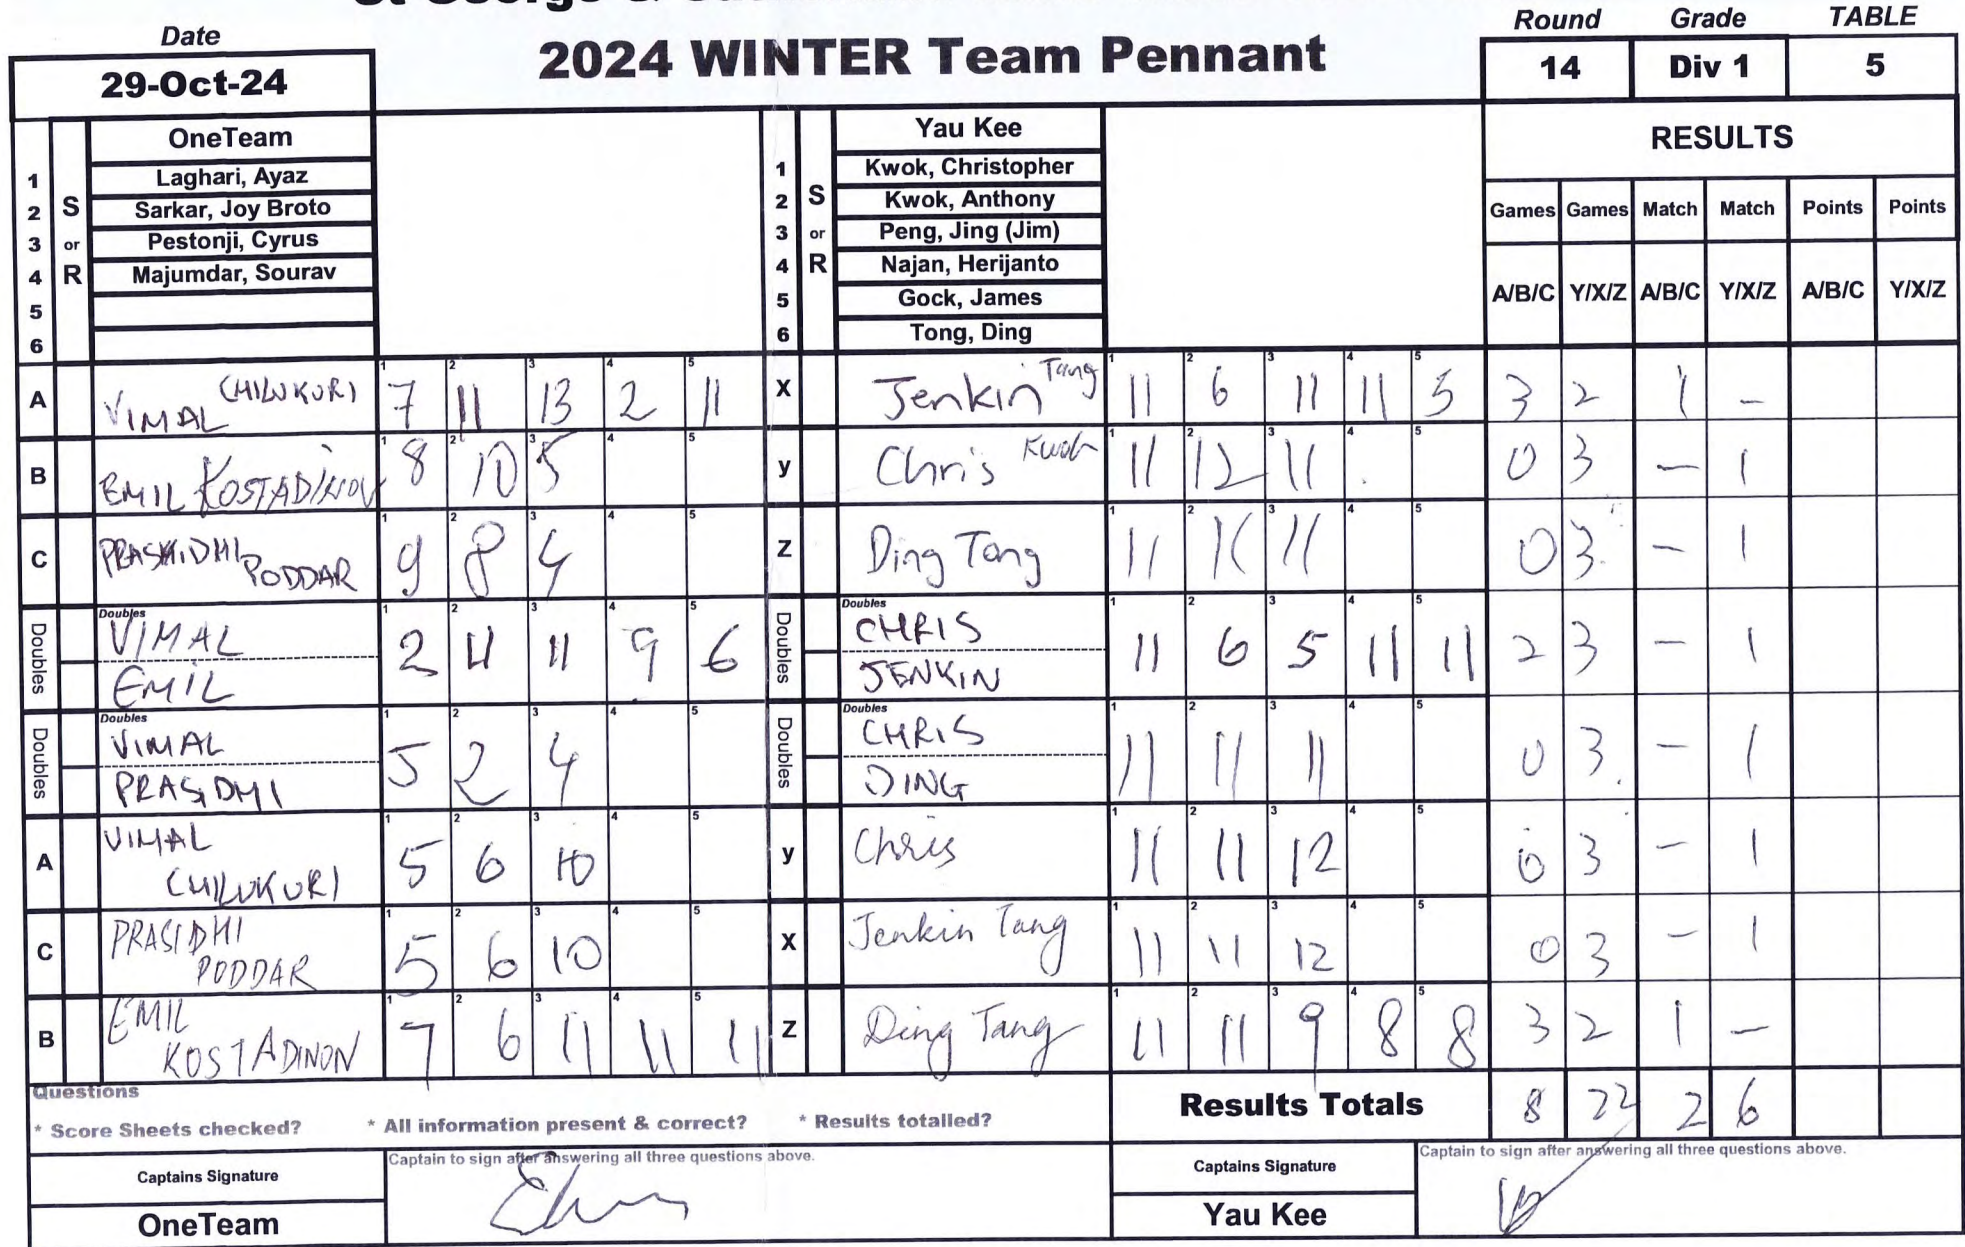 Date
29-Oct-24
2024 WINTER Team Pennant
Round Grade TABLE
14 Div 1 5
S or R
1 2 3 4 5 6
OneTeam
Laghari, Ayaz
Sarkar, Joy Broto
Pestonji, Cyrus
Majumdar, Sourav
1 2 3 4 5 6
S or R
Yau Kee
Kwok, Christopher
Kwok, Anthony
Peng, Jing (Jim)
Najan, Herijanto
Gock, James
Tong, Ding
RESULTS
Games Games Match Match Points Points
A/B/C Y/X/Z A/B/C Y/X/Z A/B/C Y/X/Z
A VIMAL CHILUKURI 7 11 13 2 11 X Jenkin Tang 11 6 11 11 5 3 2 1 -
B EMIL KOSTADINOV 8 10 5 y Chris Kwok 11 12 11 0 3 - 1
C PRASHIDHI PODDAR 9 8 4 Z Ding Tong 11 11 11 0 3 - 1
Doubles Doubles VIMAL 2 11 11 9 6 Doubles Doubles CHRIS 11 6 5 11 11 2 3 - 1
EMIL JENKIN
Doubles Doubles VIMAL 5 2 4 Doubles Doubles CHRIS 11 11 11 0 3 - 1
PRASIDHI DING
A VIMAL CHILUKURI 5 6 10 y Chris 11 11 12 0 3 - 1
C PRASIDHI PODDAR 5 6 10 X Jenkin Tang 11 11 12 0 3 - 1
B EMIL KOSTADINON 7 6 11 11 11 Z Ding Tang 11 11 9 8 8 3 2 1 -
Questions
* Score Sheets checked? * All information present & correct? * Results totalled?
Results Totals 8 22 2 6
Captains Signature Captain to sign after answering all three questions above.
OneTeam
Captains Signature Captain to sign after answering all three questions above.
Yau Kee